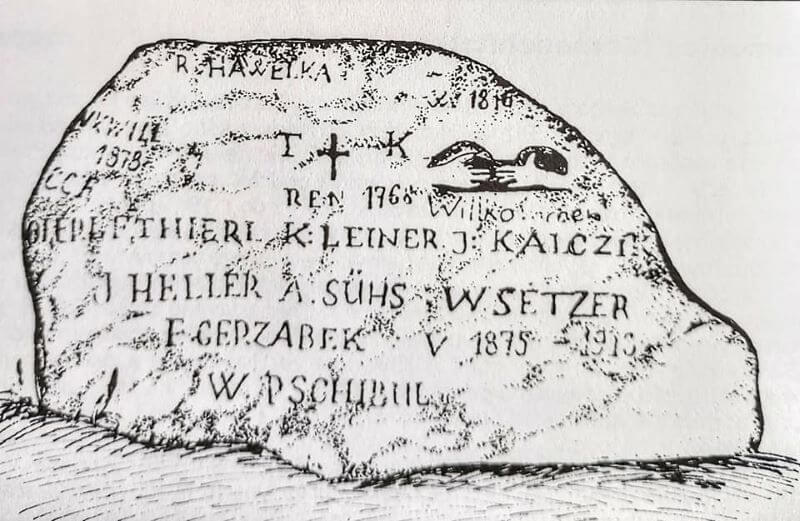 R. HAWELKA
1816
WILL
1878
CCF
T K
REN 1768
Willkommen
F. THIERL K: LEINER J: KALCZI
J HELLER A. SÜHS W SETZER
F. GERZABEK V 1875 - 1913
W PSCHIBUL